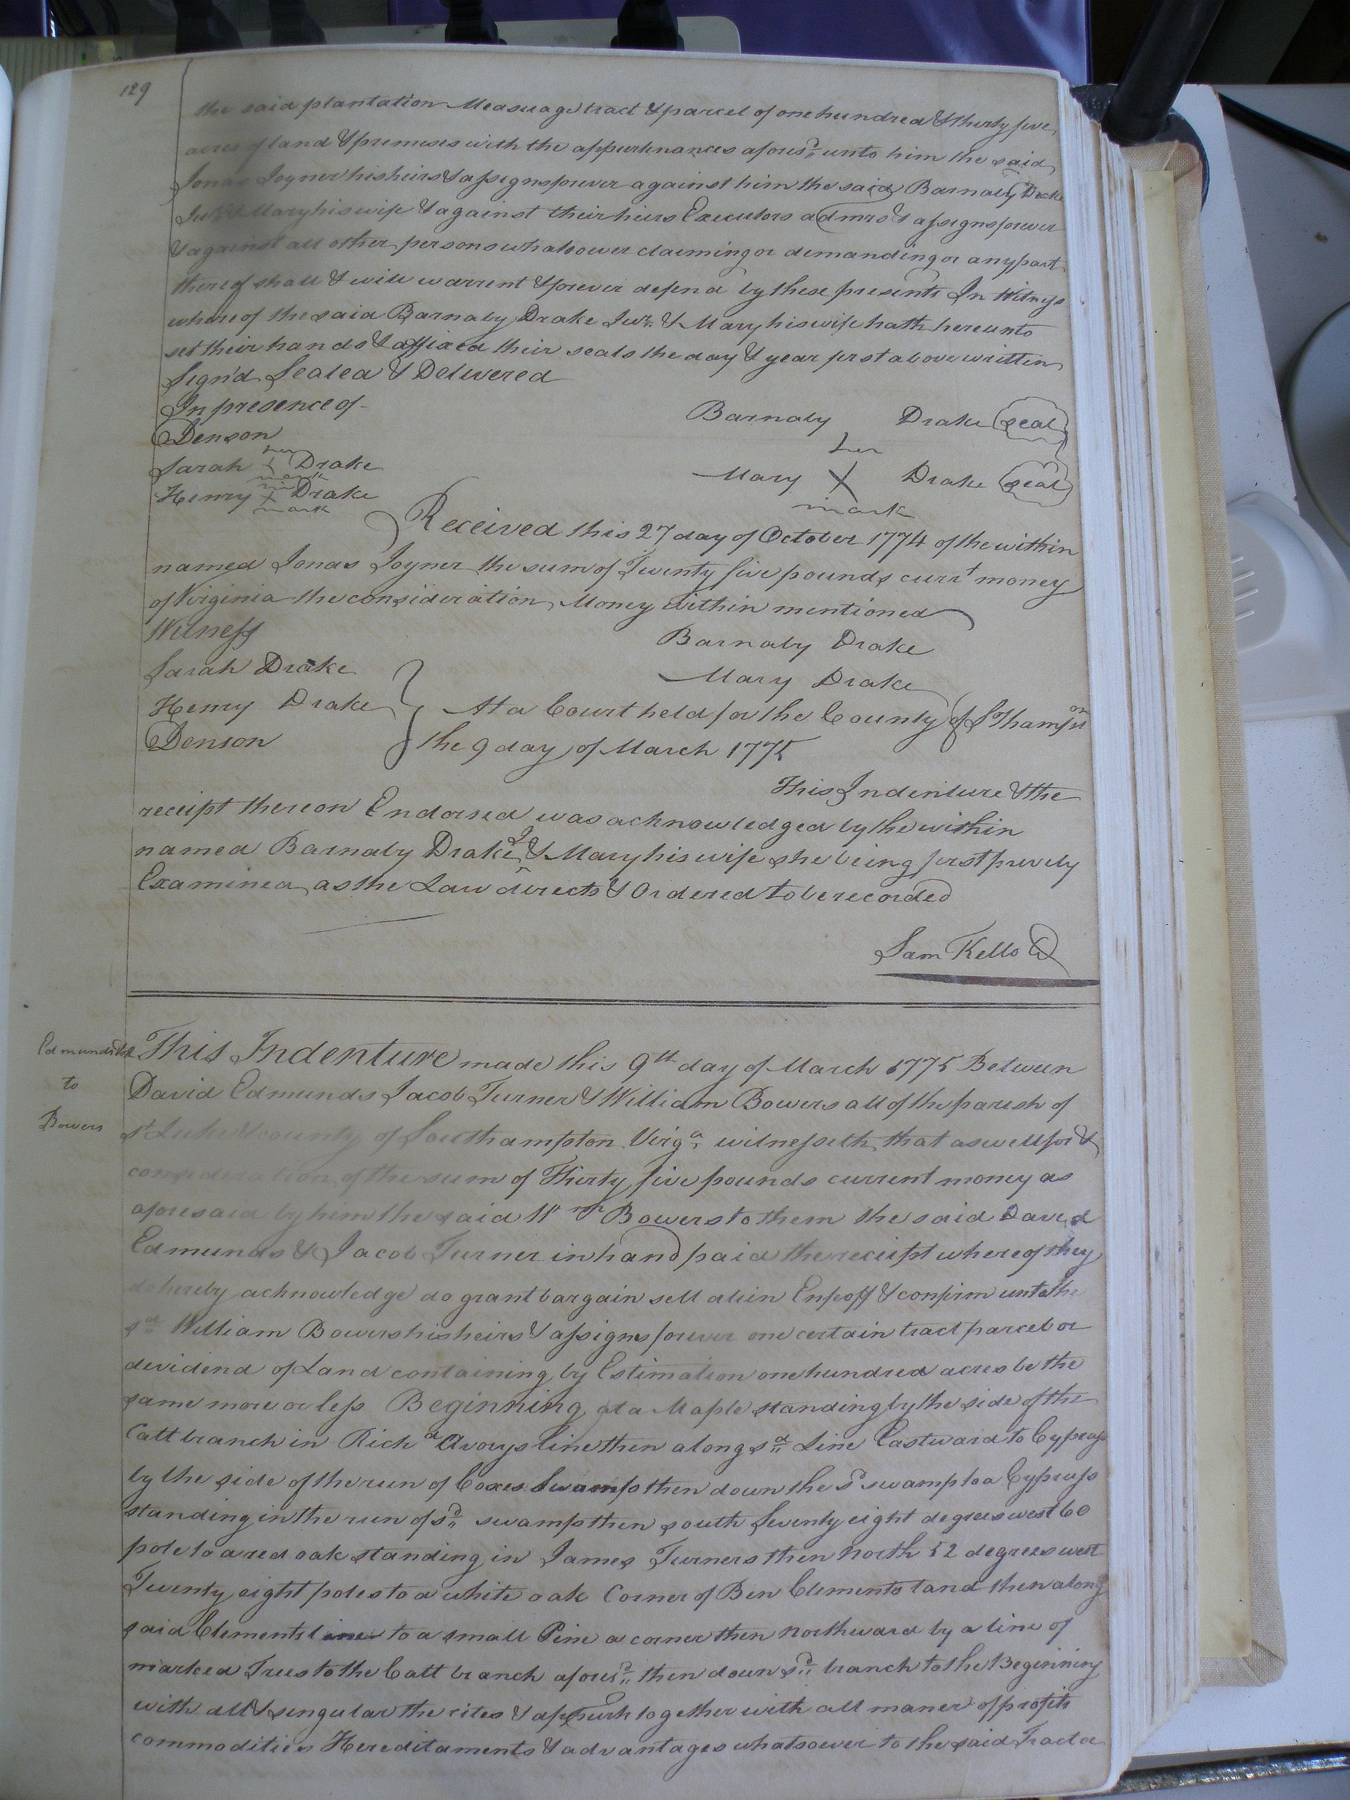 129
the said plantation Messuage tract & parcel of one hundred & thirty five
acres of land & premises with the appurtenances afores.d unto him the said
Jonas Joyner his heirs & assigns forever against him the said Barnaby Drake
Jun.r & Mary his wife & against their heirs Executors admrs & assigns forever
& against all other persons whatsoever claiming or demanding or any part
thereof shall & will warrent & forever defend by these presents In Witness
whereof the said Barnaby Drake Jun.r & Mary his wife hath hereunto
set their hands & affixed their seals the day & year first above written
Sign'd Sealed & Delivered
In presence of
Barnaby Drake seal
Denson
her
Sarah Drake
mark
her
Mary X Drake seal
mark
his
Henry X Drake
mark
Received this 27 day of October 1774 of the within
named Jonas Joyner the sum of Twenty five pounds curr.t money
of Virginia the consideration Money within mentioned
Witness
Barnaby Drake
Sarah Drake
Mary Drake
Henry Drake
At a Court held for the County of S.Thampton
Denson
the 9 day of March 1775
This Indenture & the
receipt thereon Endorsed was acknowledged by the within
named Barnaby Drake J & Mary his wife she being first privily
Examined as the Law directs & Ordered to be recorded
Sam Kello
Edmunds
to
Bowers
This Indenture made this 9th day of March 1775 Between
David Edmunds Jacob Turner & William Bowers all of the parish of
St. Luke & county of Southampton Virg.a witnesseth that as well for &
consideration of the sum of Thirty five pounds current money as
aforesaid by him the said W.m Bowers to them the said David
Edmunds & Jacob Turner in hand paid the receipt whereof they
do hereby acknowledge do grant bargain sell alien Enfeoff & confirm unto the
s.d William Bowers his heirs & assigns forever one certain tract parcel or
dividend of Land containing by Estimation one hundred acres be the
same more or less Beginning at a Maple standing by the side of the
Catt branch in Rich.d Avorys line then along s.d Line Eastward to Cypress
by the side of the run of Coxes Swamp then down the s.d swamp to a Cypress
standing in the run of s.d swamp then south Seventy eight degrees west 60
pole to a red oak standing in James Turners then North 52 degrees west
Twenty eight poles to a white oak Corner of Ben Clements land then along
said Clements line to a small Pine a corner then northward by a line of
marked Trees to the Catt branch afores.d then down s.d branch to the Beginning
with all & singular the rites & together with all maner of profits
commodities Hereditaments & advantages whatsoever to the said Tract